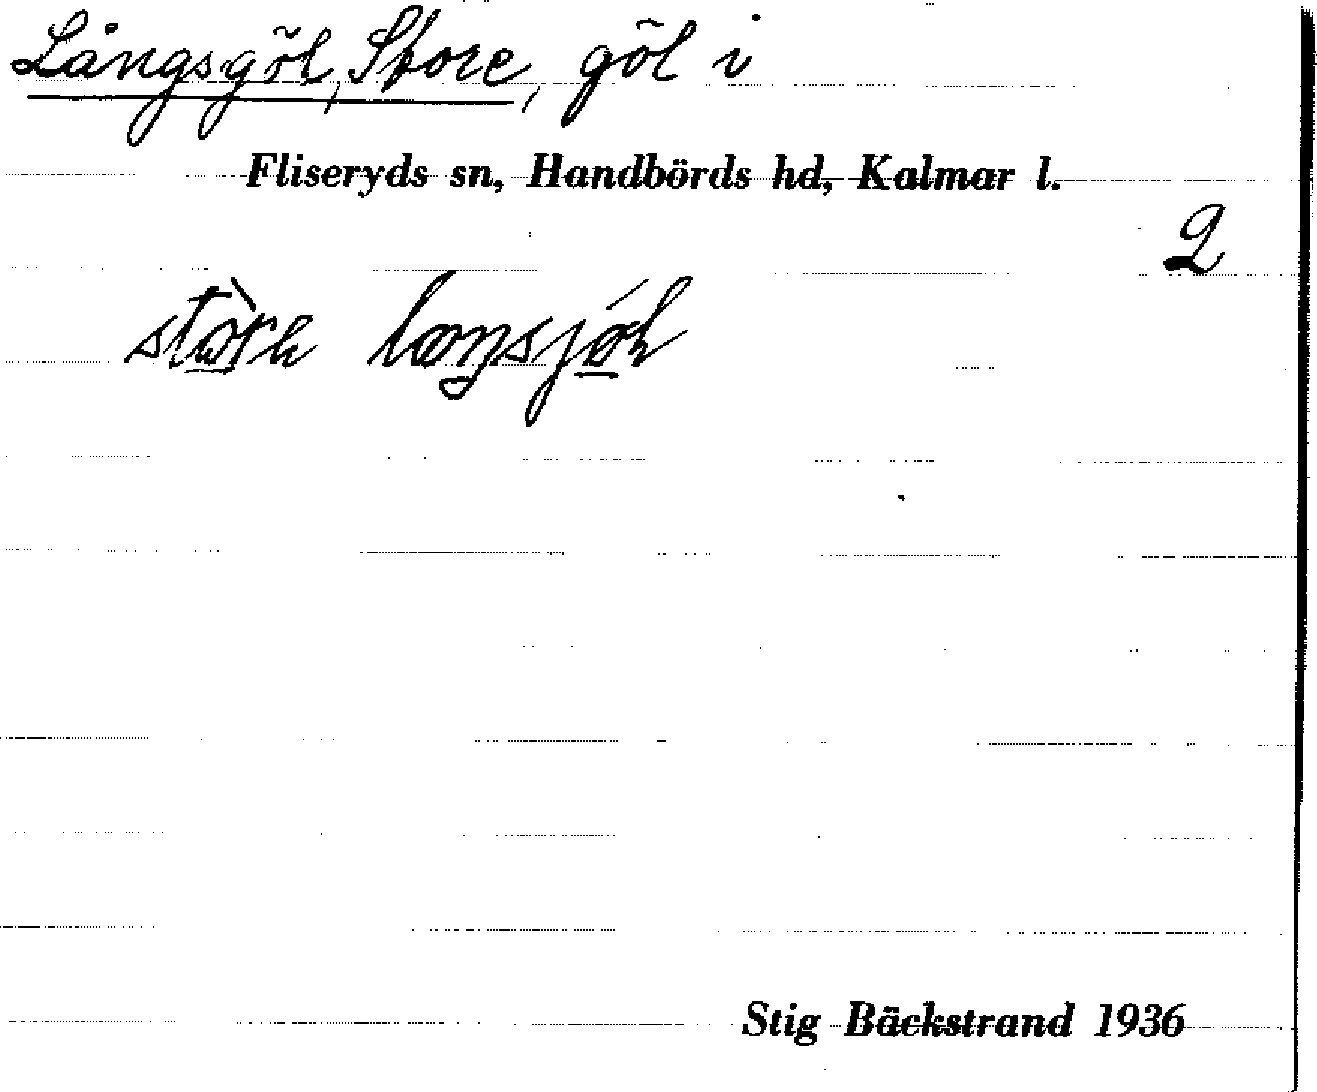 Långsgöl, Store, göl i
Fliseryds sn, Handbörds hd, Kalmar l.
2
Stig Bäckstrand 1936